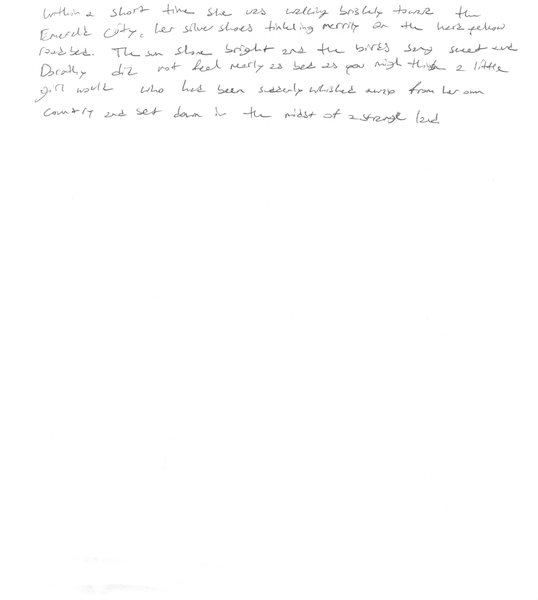 Within a short time she was walking briskly toward the
Emerald City, her silver shoes tinkling merrily on the hard yellow
roadbed. The sun shone bright and the birds sang sweet and
Dorothy did not feel nearly as bad as you migh think a little
girl would who had been suddenly whisked away from her own
country and set down in the midst of a strange land